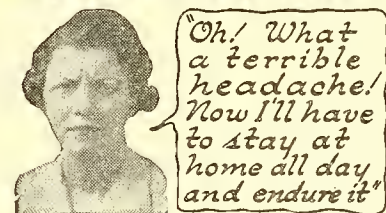 "Oh! What
a terrible
headache!
Now I'll have
to stay at
home all day
and endure it"